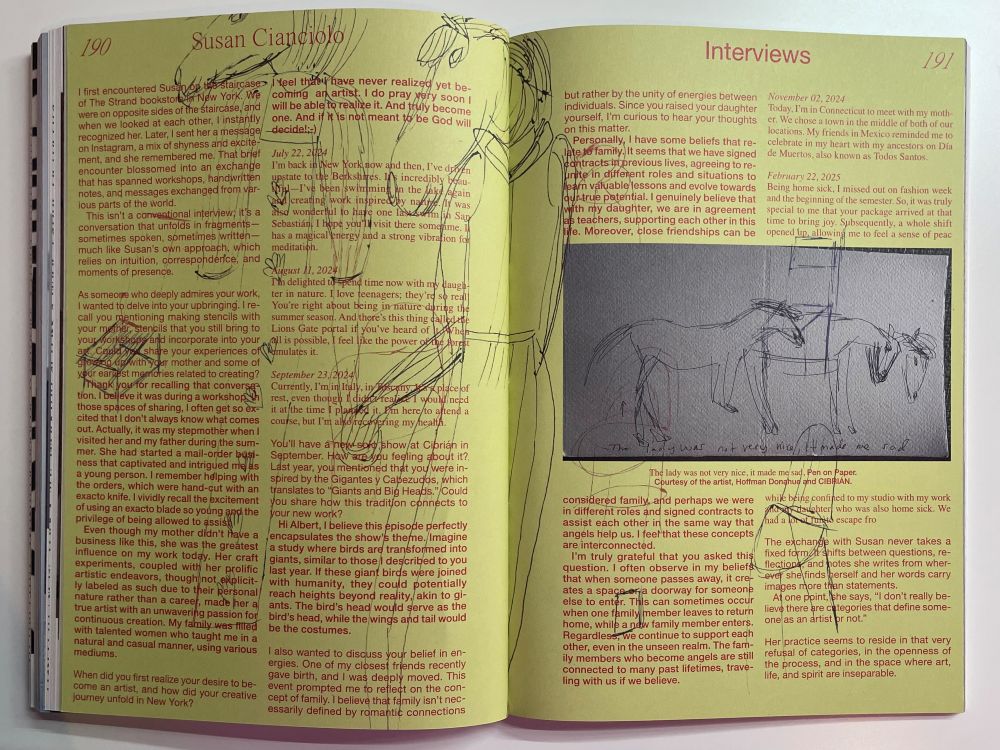 190
Susan Cianciolo
I first encountered Susan on the staircase
of The Strand bookstore in New York. We
were on opposite sides of the staircase, and
when we looked at each other, I instantly
recognized her. Later, I sent her a message
on Instagram, a mix of shyness and excite-
ment, and she remembered me. That brief
encounter blossomed into an exchange
that has spanned workshops, handwritten
notes, and messages exchanged from var-
ious parts of the world.
This isn't a conventional interview; it's a
conversation that unfolds in fragments—
sometimes spoken, sometimes written—
much like Susan's own approach, which
relies on intuition, correspondence, and
moments of presence.
As someone who deeply admires your work,
I wanted to delve into your upbringing. I re-
call you mentioning making stencils with
your mother, stencils that you still bring to
your workshops and incorporate into your
art. Could you share your experiences of
growing up with your mother and some of
your earliest memories related to creating?
Thank you for recalling that conversa-
tion. I believe it was during a workshop. In
those spaces of sharing, I often get so ex-
cited that I don't always know what comes
out. Actually, it was my stepmother when I
visited her and my father during the sum-
mer. She had started a mail-order busi-
ness that captivated and intrigued me as
a young person. I remember helping with
the orders, which were hand-cut with an
exacto knife. I vividly recall the excitement
of using an exacto blade so young and the
privilege of being allowed to assist.
Even though my mother didn't have a
business like this, she was the greatest
influence on my work today. Her craft
experiments, coupled with her prolific
artistic endeavors, though not explicit-
ly labeled as such due to their personal
nature rather than a career, made her a
true artist with an unwavering passion for
continuous creation. My family was filled
with talented women who taught me in a
natural and casual manner, using various
mediums.
When did you first realize your desire to be-
come an artist, and how did your creative
journey unfold in New York?
I feel that I have never realized yet be-
coming an artist. I do pray very soon I
will be able to realize it. And truly become
one. And if it is not meant to be God will
decide!:-)
July 22, 2024
I'm back in New York now and then, I've driven
upstate to the Berkshires. It's incredibly beau-
—I've been swimming in the lake again
and creating work inspired by nature. It was
also wonderful to have one last swim in San
Sebastián, I hope you'll visit there sometime. It
has a magical energy and a strong vibration for
meditation.
August 11, 2024
I'm delighted to spend time now with my daugh-
ter in nature. I love teenagers; they're so real!
You're right about being in nature during the
summer season. And there's this thing called the
Lions Gate portal if you've heard of it. When
all is possible, I feel like the power of the forest
emulates it.
September 23, 2024
Currently, I'm in Italy, in Tuscany. It's a place of
rest, even though I didn't realize I would need
it at the time I planned it. I'm here to attend a
course, but I'm also recovering my health.
You'll have a new solo show at Cibrián in
September. How are you feeling about it?
Last year, you mentioned that you were in-
spired by the Gigantes y Cabezudos, which
translates to "Giants and Big Heads." Could
you share how this tradition connects to
your new work?
Hi Albert, I believe this episode perfectly
encapsulates the show's theme. Imagine
a study where birds are transformed into
giants, similar to those I described to you
last year. If these giant birds were joined
with humanity, they could potentially
reach heights beyond reality, akin to gi-
ants. The bird's head would serve as the
bird's head, while the wings and tail would
be the costumes.
I also wanted to discuss your belief in en-
ergies. One of my closest friends recently
gave birth, and I was deeply moved. This
event prompted me to reflect on the con-
cept of family. I believe that family isn't nec-
essarily defined by romantic connections
Interviews
191
but rather by the unity of energies between
individuals. Since you raised your daughter
yourself, I'm curious to hear your thoughts
on this matter.
Personally, I have some beliefs that re-
late to family. It seems that we have signed
contracts in previous lives, agreeing to re-
unite in different roles and situations to
learn valuable lessons and evolve towards
our true potential. I genuinely believe that
with my daughter, we are in agreement
as teachers, supporting each other in this
life. Moreover, close friendships can be
November 02, 2024
Today, I'm in Connecticut to meet with my moth-
er. We chose a town in the middle of both of our
locations. My friends in Mexico reminded me to
celebrate in my heart with my ancestors on Día
de Muertos, also known as Todos Santos.
February 22, 2025
Being home sick, I missed out on fashion week
and the beginning of the semester. So, it was truly
special to me that your package arrived at that
time to bring joy. Subsequently, a whole shift
opened up, allowing me to feel a sense of peac
The lady was not very nice, it made me sad
The lady was not very nice, it made me sad, Pen on Paper.
Courtesy of the artist, Hoffman Donahue and CIBRIÁN.
considered family, and perhaps we were
in different roles and signed contracts to
assist each other in the same way that
angels help us. I feel that these concepts
are interconnected.
I'm truly grateful that you asked this
question. I often observe in my beliefs
that when someone passes away, it cre-
ates a space or a doorway for someone
else to enter. This can sometimes occur
when one family member leaves to return
home, while a new family member enters.
Regardless, we continue to support each
other, even in the unseen realm. The fam-
ily members who become angels are still
connected to many past lifetimes, trave-
ling with us if we believe.
while being confined to my studio with my work
and my daughter, who was also home sick. We
had a lot of futile escape fro
The exchange with Susan never takes a
fixed form. It shifts between questions, re-
flections, and notes she writes from wher-
ever she finds herself and her words carry
images more than statements.
At one point, she says, "I don't really be-
lieve there are categories that define some-
one as an artist or not."
Her practice seems to reside in that very
refusal of categories, in the openness of
the process, and in the space where art,
life, and spirit are inseparable.